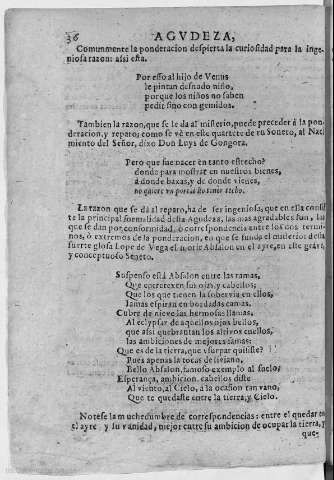 36 AGVDEZA,
Comunmente la ponderacion despierta la curiosidad para la inge-
niosa razon: assi esta.
Por esso al hijo de Venus
le pintan desnudo niño,
porque los niños no saben
pedir sino con gemidos.
Tambien la razon, que se le da al misterio, puede preceder à la pon-
deracion, y reparo; como se vè en este quartete de vn Soneto, al Naci-
miento del Señor, dixo Don Luys de Gongora.
Pero que fue nacer en tanto estrecho?
donde para mostrar en nuestros bienes,
à donde baxas, y de donde vienes,
no quiere vn portal
La razon que se dà al reparo, ha de ser ingeniosa, que en ella consis-
te la principal formalidad desta Agudeza, las mas agradables son, las
que se dan por conformidad, ò correspondencia entre los dos termi-
nos, ò extremos de la ponderacion, en que se funda el
suerte glosa Lope de Vega el morir Absalon en el ayre, en este graue,
y conceptuoso Soneto.
Suspenso està Absalon entre las ramas,
Que entretexen sus ojas, y cabellos;
Que los que tienen la soberuia en ellos,
Iamas espiran en bordadas camas.
Cubre de nieue las hermosas llamas,
Al eclypsar de aquellos ojos bellos,
que assi quebrantan los altiuos cuellos,
las ambiciones de mejores camas:
Que es de la tierra, que vsurpar quisiste?
Pues apenas la tocas de liuiano,
Bello Absalon, famoso exemplo al suelo;
Esperança, ambicion, cabellos diste
Al viento, al Cielo, à la ocasion tan vano,
Que te quedaste entre la tierra, y Cielo.
Notese la muchedumbre de correspondencias: entre el quedar en
el ayre, y su vanidad, mejor entre su ambicion de ocupar la tierra, y
que-